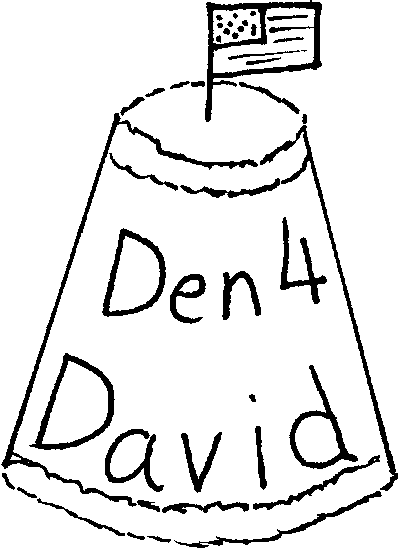 Den 4
David